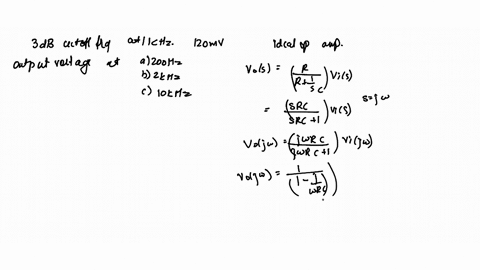 3dB cutoff frq at 1kHz. 120mV
output voltage at a) 200Hz
b) 2kHz
c) 10kHz
Ideal op amp.
Vo(s) = (R / (R + 1/sC)) Vi(s)
= (sRC / (sRC + 1)) Vi(s) s = jω
Vo(jω) = (jωRC / (jωRC + 1)) Vi(jω)
Vo(jω) = (1 / (1 - j/ωRC))